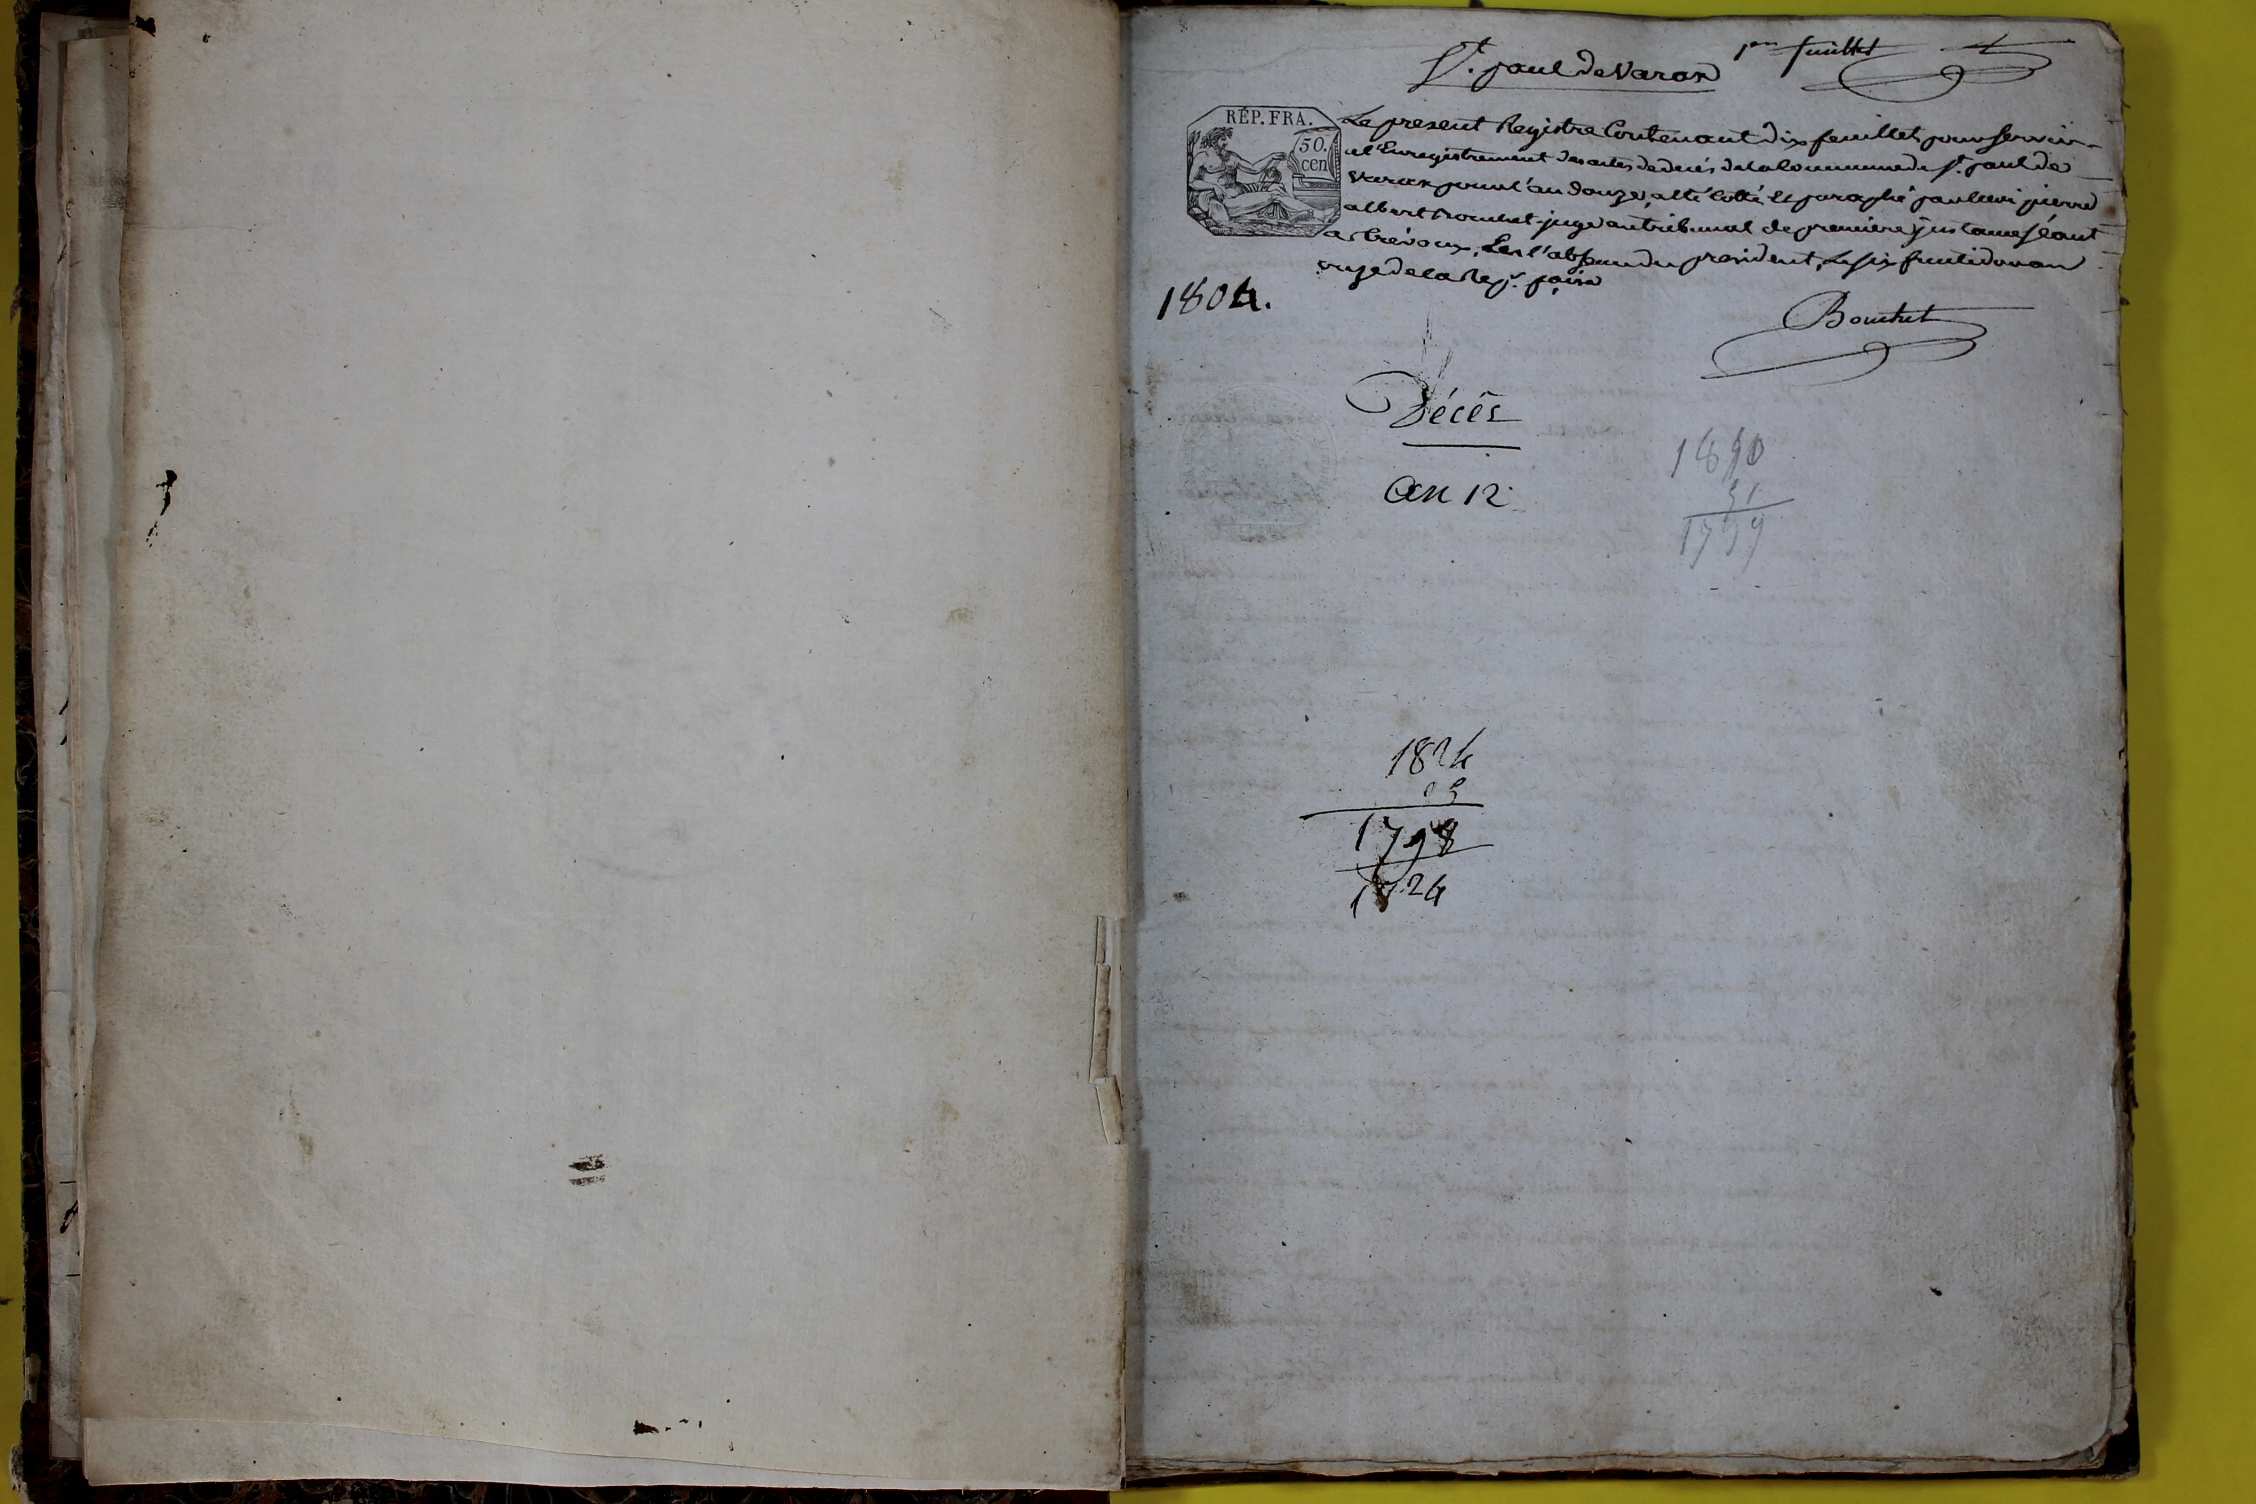 St. paul de Varax
1er feuillet
RÉP. FRA.
50.
cen
Le present Registre Contenant dix feuillets pour servir
a l'Enregistrement des actes de deces de la Commune de St. paul de
Varax pour l'an douze, a été Cotté et paraphé par moi pierre
albert Bouchet juge au tribunal de premiere instance séant
a trévoux, En l'absence du president, Le six fructidor an
onze de la Rep.
1804.
Bouchet
Décès
an 12
1890
91
1799
1824
1798
1824